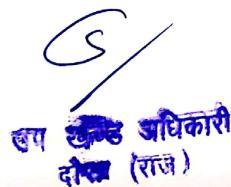 उप खण्ड अधिकारी
(राज)